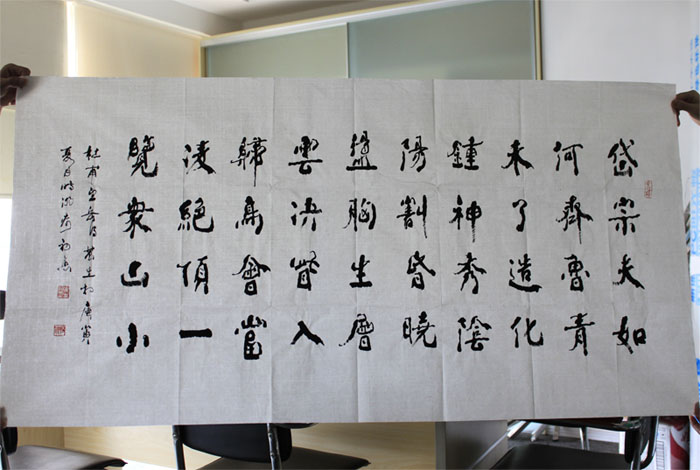 岱宗夫如
何齊魯青
未了造化
鍾神秀陰
陽割昏曉
盪胸生層
雲決眥入
歸鳥會當
凌絕頂一
覽衆山小
杜甫望岳